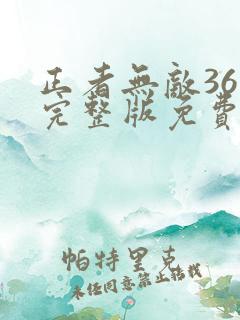 正者無敵36
完整版免費
帕特里克
未經同意禁止轉載